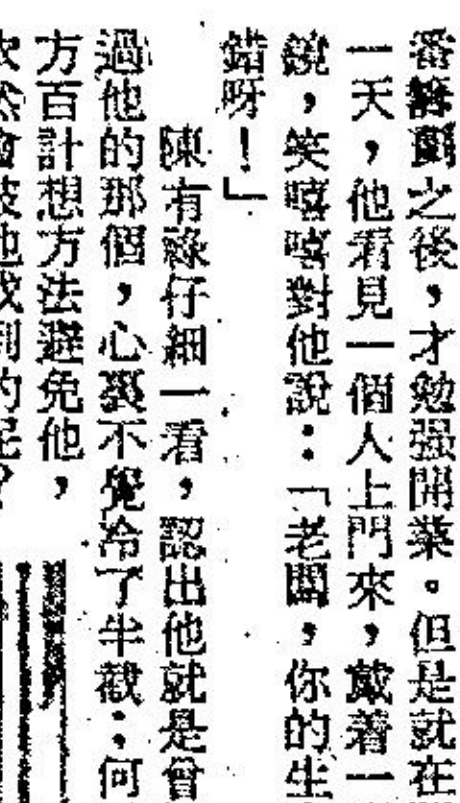 番籌劃之後，才勉强開業。但是就在
一天，他看見一個人上門來，戴着一
鏡，笑嘻嘻對他說：「老闆，你的生
錯呀！」
陳有祿仔細一看，認出他就是曾
過他的那個，心裏不覺冷了半截：何
方百計想方法避免他，
然會被他找到的呢？